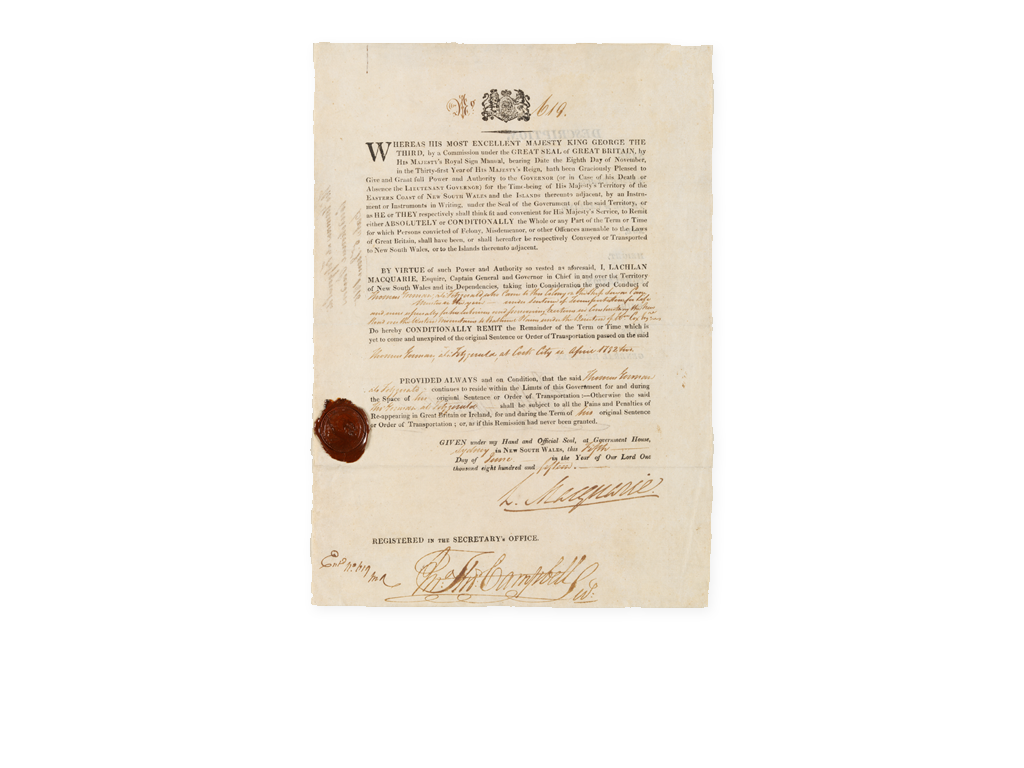 No. 619.
WHEREAS HIS MOST EXCELLENT MAJESTY KING GEORGE THE
THIRD, by a Commission under the GREAT SEAL of GREAT BRITAIN, by
HIS MAJESTY's Royal Sign Manual, bearing Date the Eighth Day of November,
in the Thirty-first Year of HIS MAJESTY's Reign, hath been Graciously Pleased to
Give and Grant full Power and Authority to the GOVERNOR (or in Case of his Death or
Absence the LIEUTENANT GOVERNOR) for the Time-being of HIS MAJESTY's Territory of the
EASTERN COAST of NEW SOUTH WALES and the ISLANDS thereunto adjacent, by an Instru-
ment or Instruments in Writing, under the Seal of the Government of the said Territory, or
as HE or THEY respectively shall think fit and convenient for HIS MAJESTY's Service, to Remit
either ABSOLUTELY or CONDITIONALLY the Whole or any Part of the Term or Time
for which Persons convicted of Felony, Misdemeanor, or other Offences amenable to the Laws
of Great Britain, shall have been, or shall hereafter be respectively Conveyed or Transported
to NEW SOUTH WALES, or to the Islands thereunto adjacent.
BY VIRTUE of such Power and Authority so vested as aforesaid, I, LACHLAN
MACQUARIE, Esquire, Captain General and Governor in Chief in and over the Territory
of New South Wales and its Dependencies, taking into Consideration the good Conduct of
Thomas Gorman als Fitzgerald who Came to this Colony in the Ship
Master in the year under Sentence of Transportation for Life
and more especially for his
Road over the Western Mountains to Bathurst Plains under the Direction of Wm Cox Esqre
Do hereby CONDITIONALLY REMIT the Remainder of the Term or Time which is
yet to come and unexpired of the original Sentence or Order of Transportation passed on the said
Thomas Gorman, als Fitzgerald, at Cork City in April
PROVIDED ALWAYS and on Condition, that the said Thomas Gorman
als Fitzgerald, continues to reside within the Limits of this Government for and during
the Space of his original Sentence or Order of Transportation:—Otherwise the said
Thos Gorman als Fitzgerald shall be subject to all the Pains and Penalties of
Re-appearing in Great Britain or Ireland, for and during the Term of his original Sentence
or Order of Transportation; or, as if this Remission had never been granted.
GIVEN under my Hand and Official Seal, at Government House,
Sydney in NEW SOUTH WALES, this Fifth
Day of June in the Year of Our Lord One
thousand eight hundred and fifteen.
L. Macquarie
REGISTERED IN THE SECRETARY's OFFICE.
No 619
Jno. Thos. Campbell Sec.